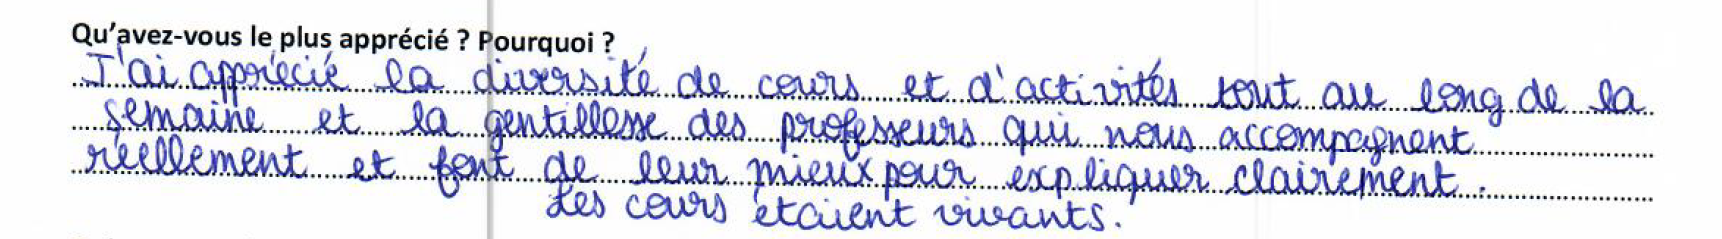 Qu'avez-vous le plus apprécié ? Pourquoi ?
J'ai apprécié la diversité de cours et d'activités tout au long de la
semaine et la gentillesse des professeurs qui nous accompagnent
réellement et font de leur mieux pour expliquer clairement.
Les cours étaient vivants.